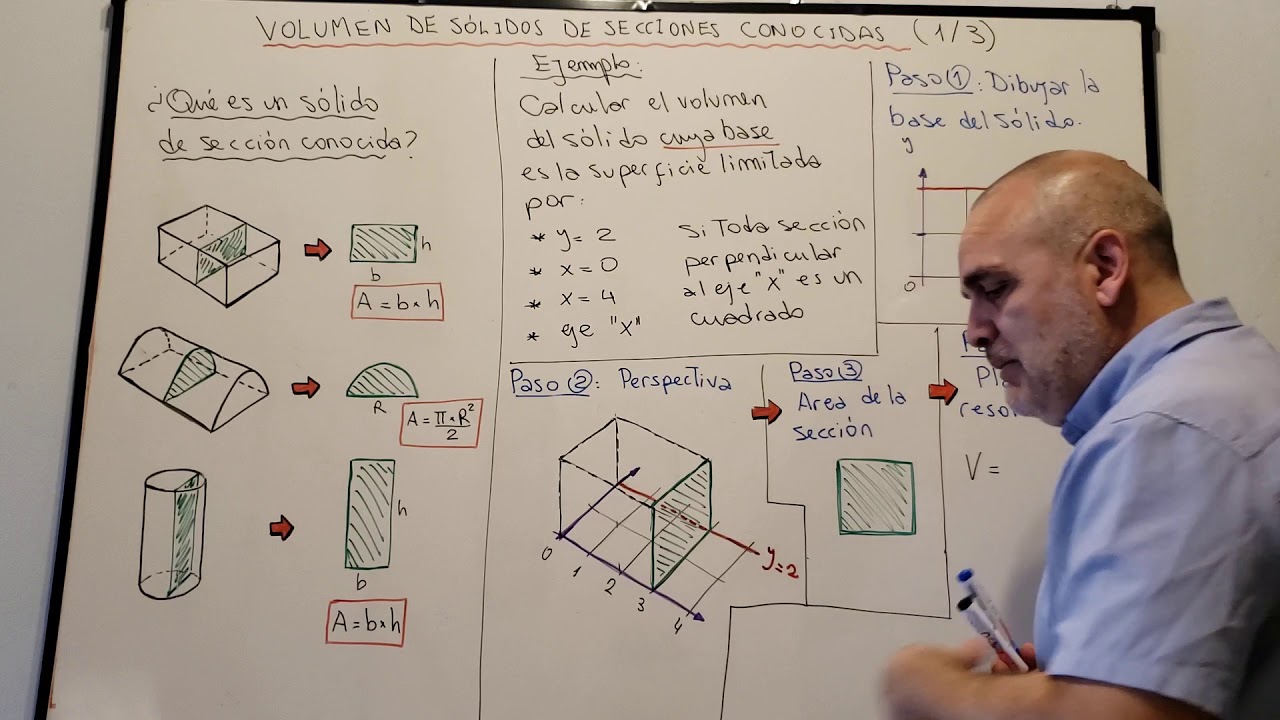 VOLUMEN DE SÓLIDOS DE SECCIONES CONOCIDAS (1/3)
¿Qué es un sólido
de sección conocida?
h
b
A = b×h
R
A = π×R²/2
h
b
A = b×h
Ejemplo:
Calcular el volumen
del sólido cuya base
es la superficie limitada
por:
* y = 2
* x = 0
* x = 4
* eje "x"
Si Toda sección
perpendicular
al eje "x" es un
cuadrado
Paso 1: Dibujar la
base del sólido.
y
0
Paso 2: Perspectiva
0
1
2
3
4
y=2
Paso 3
Area de la
sección
V =